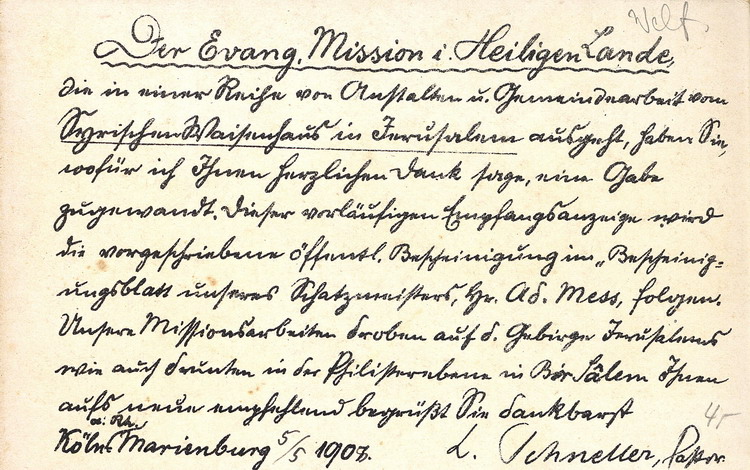 Welf
Der Evang. Mission i. Heiligen Lande,
die in einer Reihe von Anstalten u. Gemeindearbeit vom
Syrischen Waisenhaus in Jerusalem ausgeht, haben Sie,
wofür ich Ihnen herzlichen Dank sage, eine Gabe
zugewandt. Dieser vorläufigen Empfangsanzeige wird
die vorgeschriebene öffentl. Bescheinigung im „Bescheinig=
ungsblatt unseres Schatzmeisters, Hr. Ad. Mess, folgen.
Unsere Missionsarbeiten droben auf d. Gebirge Jerusalems
wie auch drunten in der Philisterebene in Bir Sâlem Ihnen
aufs neue empfehlend begrüßt Sie dankbarst
a. Rh.
Köln-Marienburg 5/5 1908. L. Schneller, Pastor.